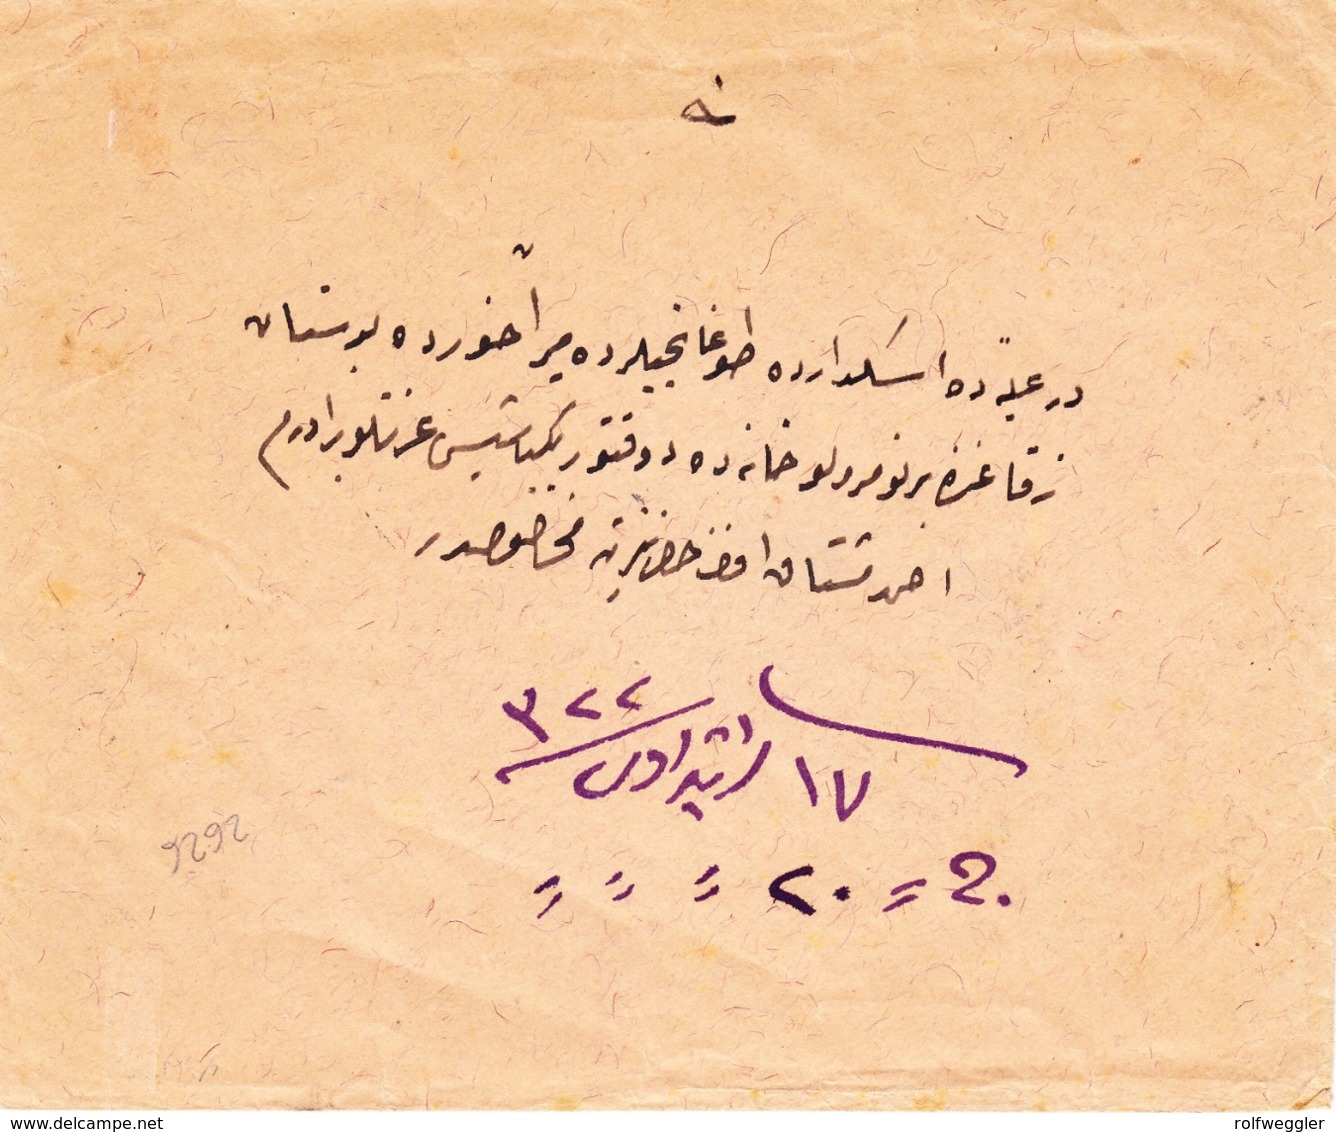 در عليه ده اسكدارده طوغانجيلرده ميرآخورده بوستان
زقاغنده بر نومرولو خانه ده دوقتور بيكباشيسى عزتلو برادرم
احمد مشتاق افندى حضرتلرينه مخصوصدر
٣٢٢
١٧
٢٠ = 2.
9292
www.delcampe.net
rolfweggler